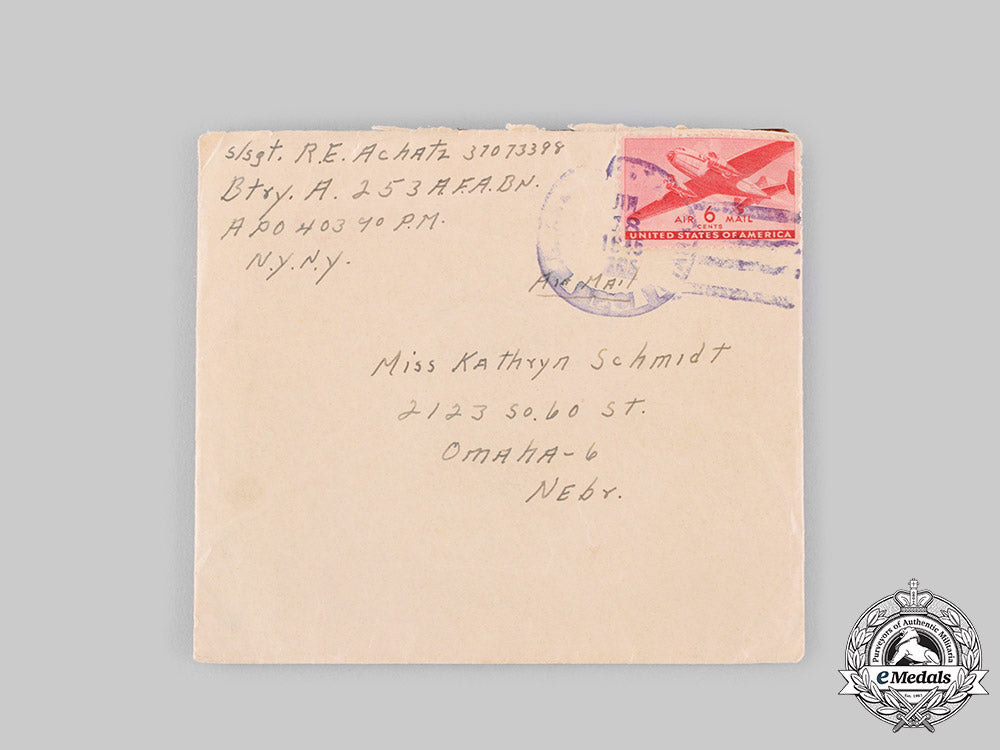 s/sgt. R.E. Achatz 37073398
Btry. A. 253 A.F.A.BN.
APO 403 % P.M.
N.Y. N.Y.
AIR 6 MAIL
CENTS
UNITED STATES OF AMERICA
1945
Air Mail
Miss Kathryn Schmidt
2123 So. 60 St.
OMAHA-6
Nebr.
Purveyors of Authentic Militaria
eMedals